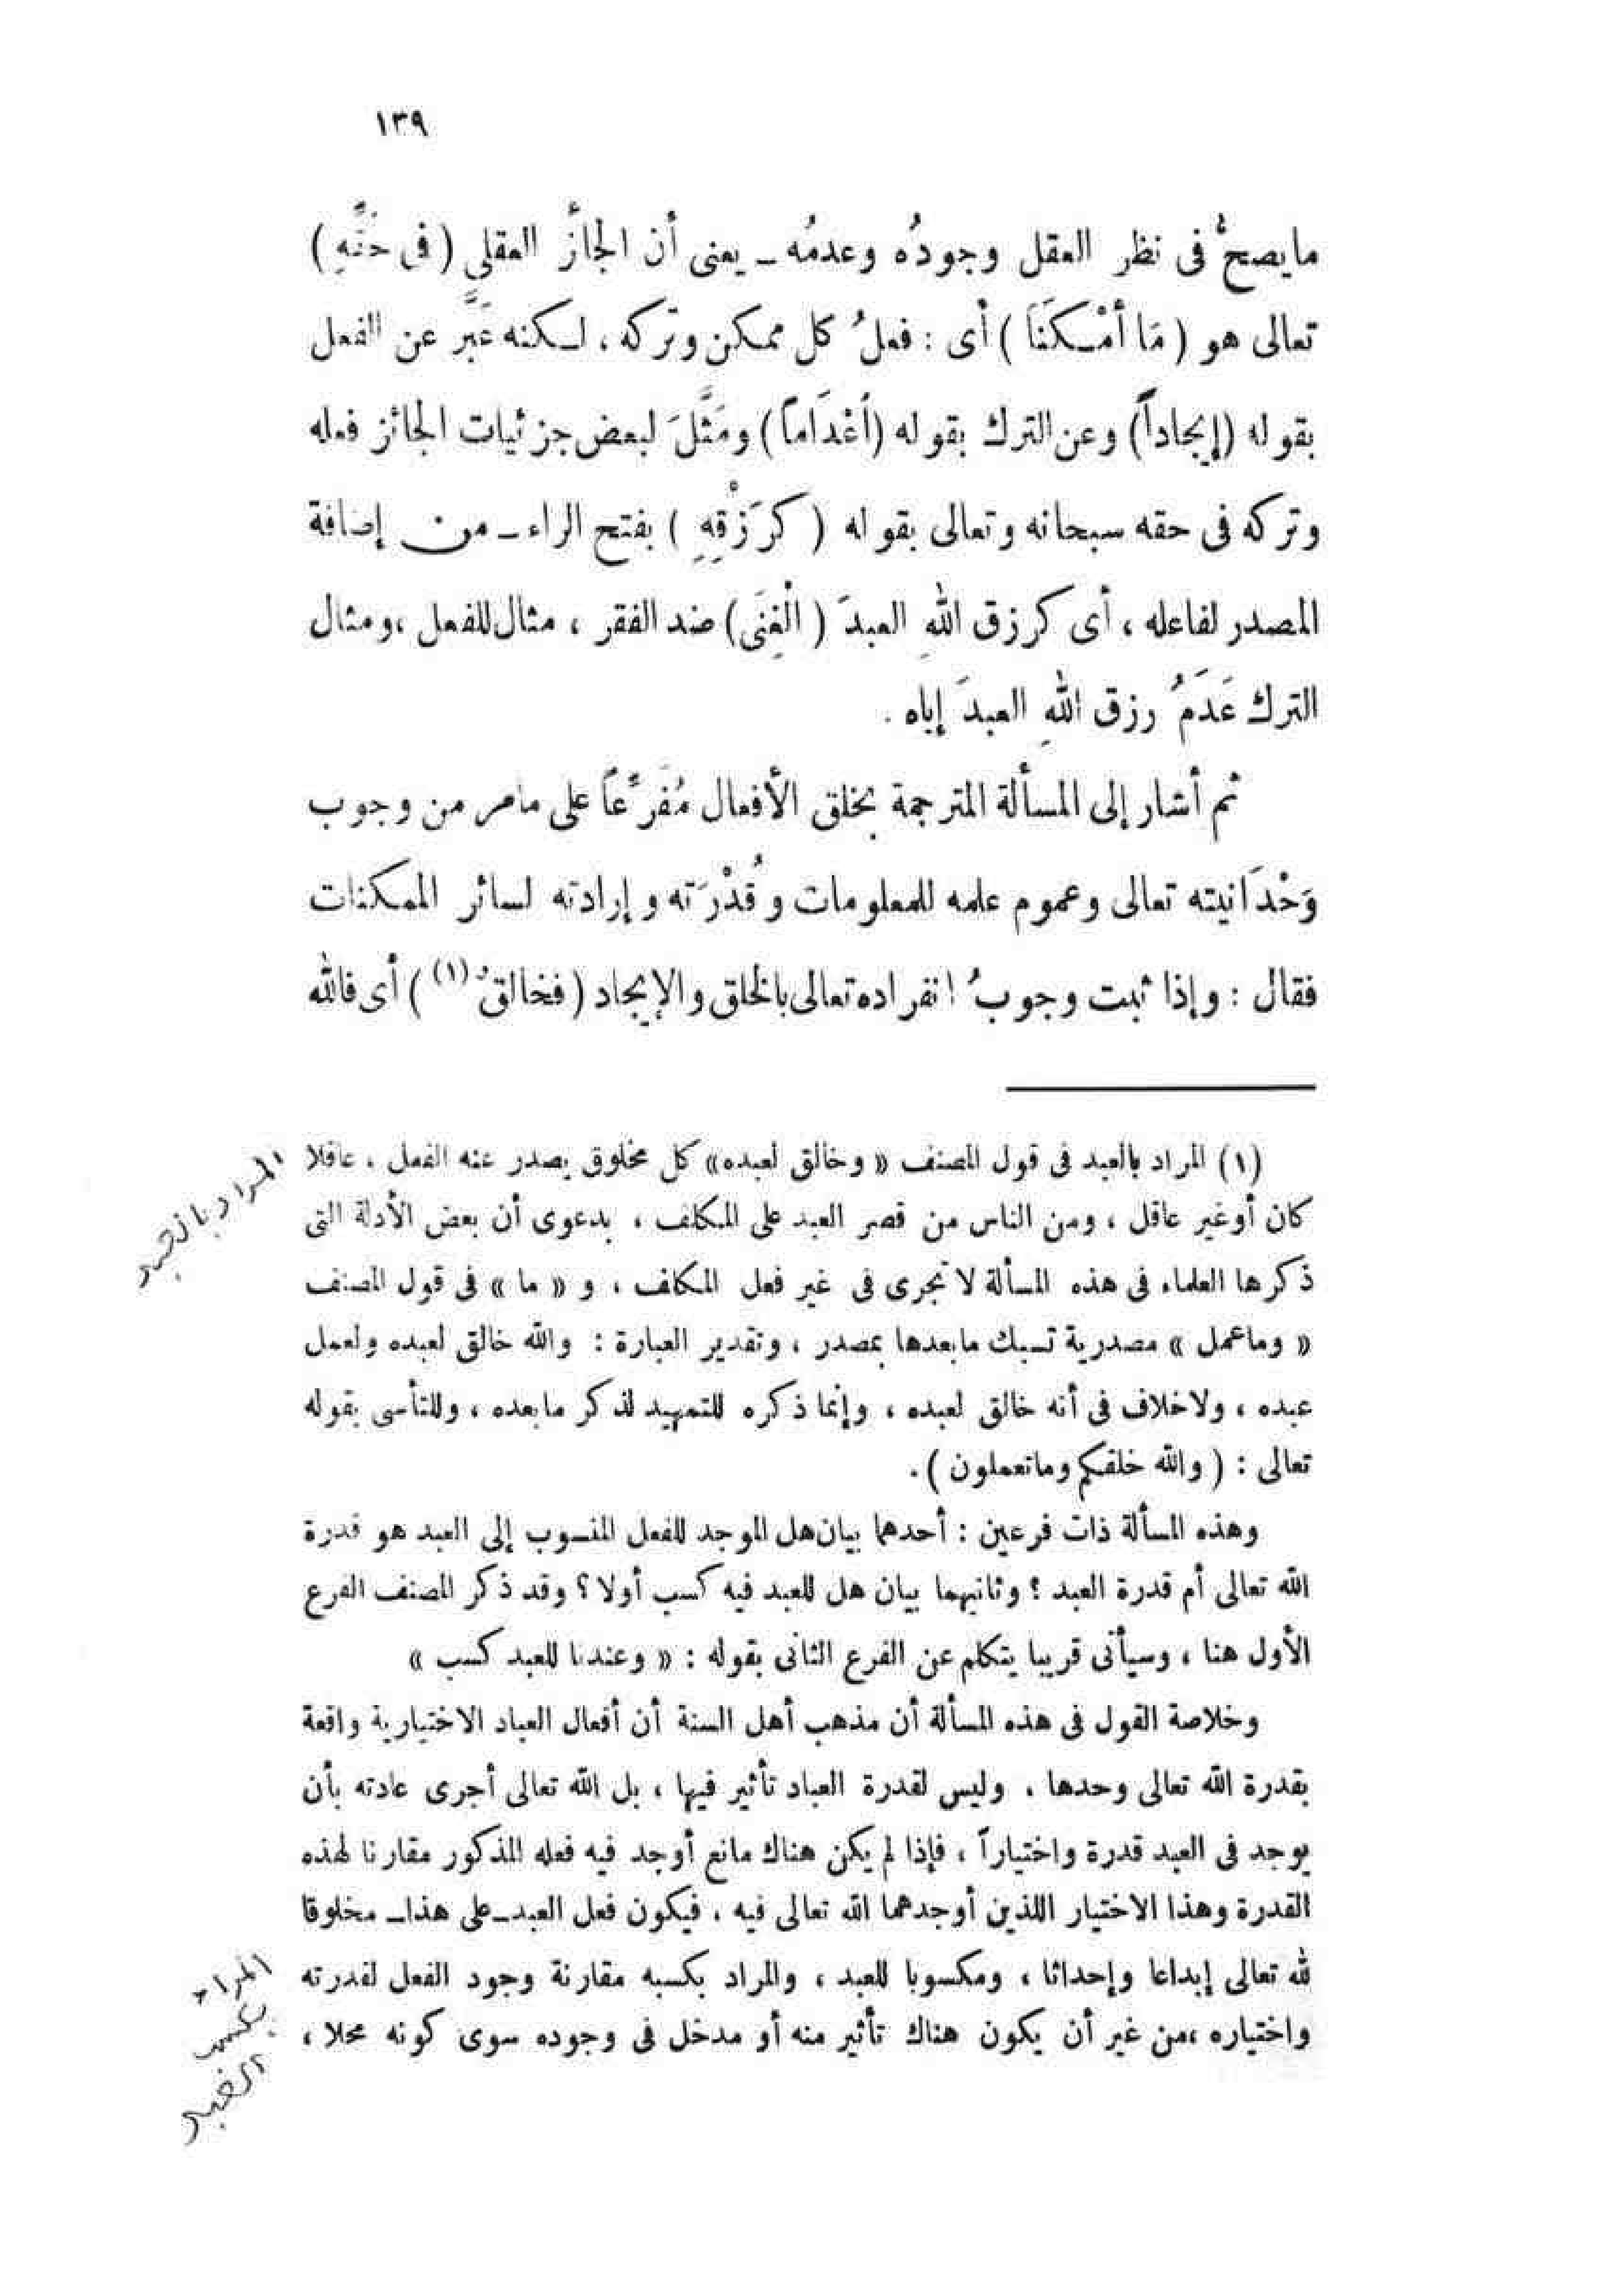 ١٣٩
مايصحُّ فى نظر العقل وجودُه وعدمُه ــ يعنى أن الجائزَ العقلى ( فى حَقِّهِ )
تعالى هو ( مَا أمْـكَنَاَ ) أى : فعلُ كل ممكن وتركه ، لـكنه عَبَّر عن الفعل
بقوله (إيجاداً) وعن الترك بقوله (اَعْدَاماً) ومَثَّلَ لبعض جزئيات الجائز فعله
وتركه فى حقه سبحانه وتعالى بقوله ( كَرَزْقِهِ ) بفتح الراء ــ من إضافة
المصدر لفاعله ، أى كرزق اللهِ العبدَ ( الْغِنَى) ضد الفقر ، مثال للفعل ،ومثال
الترك عَدَمُ رزق اللهِ العبدَ إياه .
ثم أشار إلى المسألة المترجمة بخلق الأفعال مُفَرِّعاً على مامر من وجوب
وَحْدَانيته تعالى وعموم علمه للمعلومات وقُدْرَته وإرادته لسائر الممكنات
فقال : وإذا ثبت وجوبُ انفراده تعالى بالخلق والإيجاد (فخالقٌ(١) ) أى فالله
(١) المراد بالعبد فى قول المصنف « وخالق لعبده» كل مخلوق يصدر عنه الفعل ، عاقلا
كان أوغير عاقل ، ومن الناس من قصر العبد على المكلف ، بدعوى أن بعض الأدلة التى
ذكرها العلماء فى هذه المسألة لا تجرى فى غير فعل المكلف ، و « ما » فى قول المصنف
« وماعمل » مصدرية تسبك مابعدها بمصدر ، وتقدير العبارة : والله خالق لعبده ولعمل
عبده ، ولاخلاف فى أنه خالق لعبده ، وإنما ذكره للتمهيد لذكر مابعده ، وللتأسى بقوله
تعالى : ( والله خلقكم وماتعملون ) .
وهذه المسألة ذات فرعين : أحدهما بيان هل الموجد للفعل المنسوب إلى العبد هو قدرة
الله تعالى أم قدرة العبد ؟ وثانيهما بيان هل للعبد فيه كسب أولا ؟ وقد ذكر المصنف الفرع
الأول هنا ، وسيأتى قريبا يتكلم عن الفرع الثانى بقوله : « وعندنا للعبد كسب »
وخلاصة القول فى هذه المسألة أن مذهب أهل السنة أن أفعال العباد الاختيارية واقعة
بقدرة الله تعالى وحدها ، وليس لقدرة العباد تأثير فيها ، بل الله تعالى أجرى عادته بأن
يوجد فى العبد قدرة واختياراً ، فإذا لم يكن هناك مانع أوجد فيه فعله المذكور مقارنا لهذه
القدرة وهذا الاختيار اللذين أوجدهما الله تعالى فيه ، فيكون فعل العبد ــ على هذا ــ مخلوقا
لله تعالى إبداعا وإحداثا ، ومكسوبا للعبد ، والمراد بكسبه مقارنة وجود الفعل لقدرته
واختياره ،من غير أن يكون هناك تأثير منه أو مدخل فى وجوده سوى كونه محلا ،
المراد بالعبد
المراد
بكسب
العبد